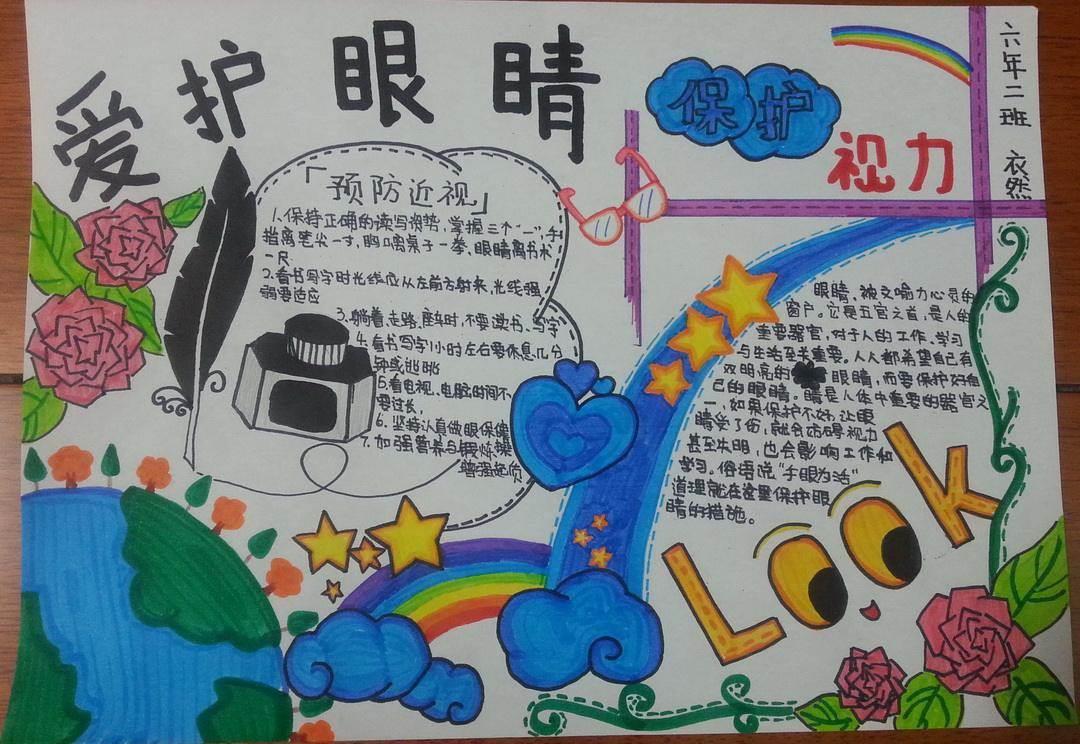 爱护眼睛
保护
视力
六年二班 衣然
「预防近视」
1.保持正确的读写姿势,掌握三个"一",手
指离笔尖一寸,胸口离桌子一拳,眼睛离书本
一尺
2.看书写字时光线应从左前方射来,光线强
弱要适应
3.躺着,走路,座车时,不要读书、写字
4.看书写字1小时左右要休息几分
钟或眺眺
5.看电视、电脑,时间不
要过长,
6.坚持认真做眼保健
7.加强营养与锻炼
增强体质
眼睛、被文喻为心灵的
窗户。它是五官之首,是人的
重要器官,对于人的工作、学习
与生活至关重要。人人都希望自己有
双明亮的眼睛,而要保护好自
己的眼睛。睛是人体中重要的器官之
一,如果保护不好,让眼
睛受了伤,就会妨碍视力
甚至失明,也会影响工作和
学习。俗语说"手眼为活"
道理就在这里保护眼
睛的措施。
Look